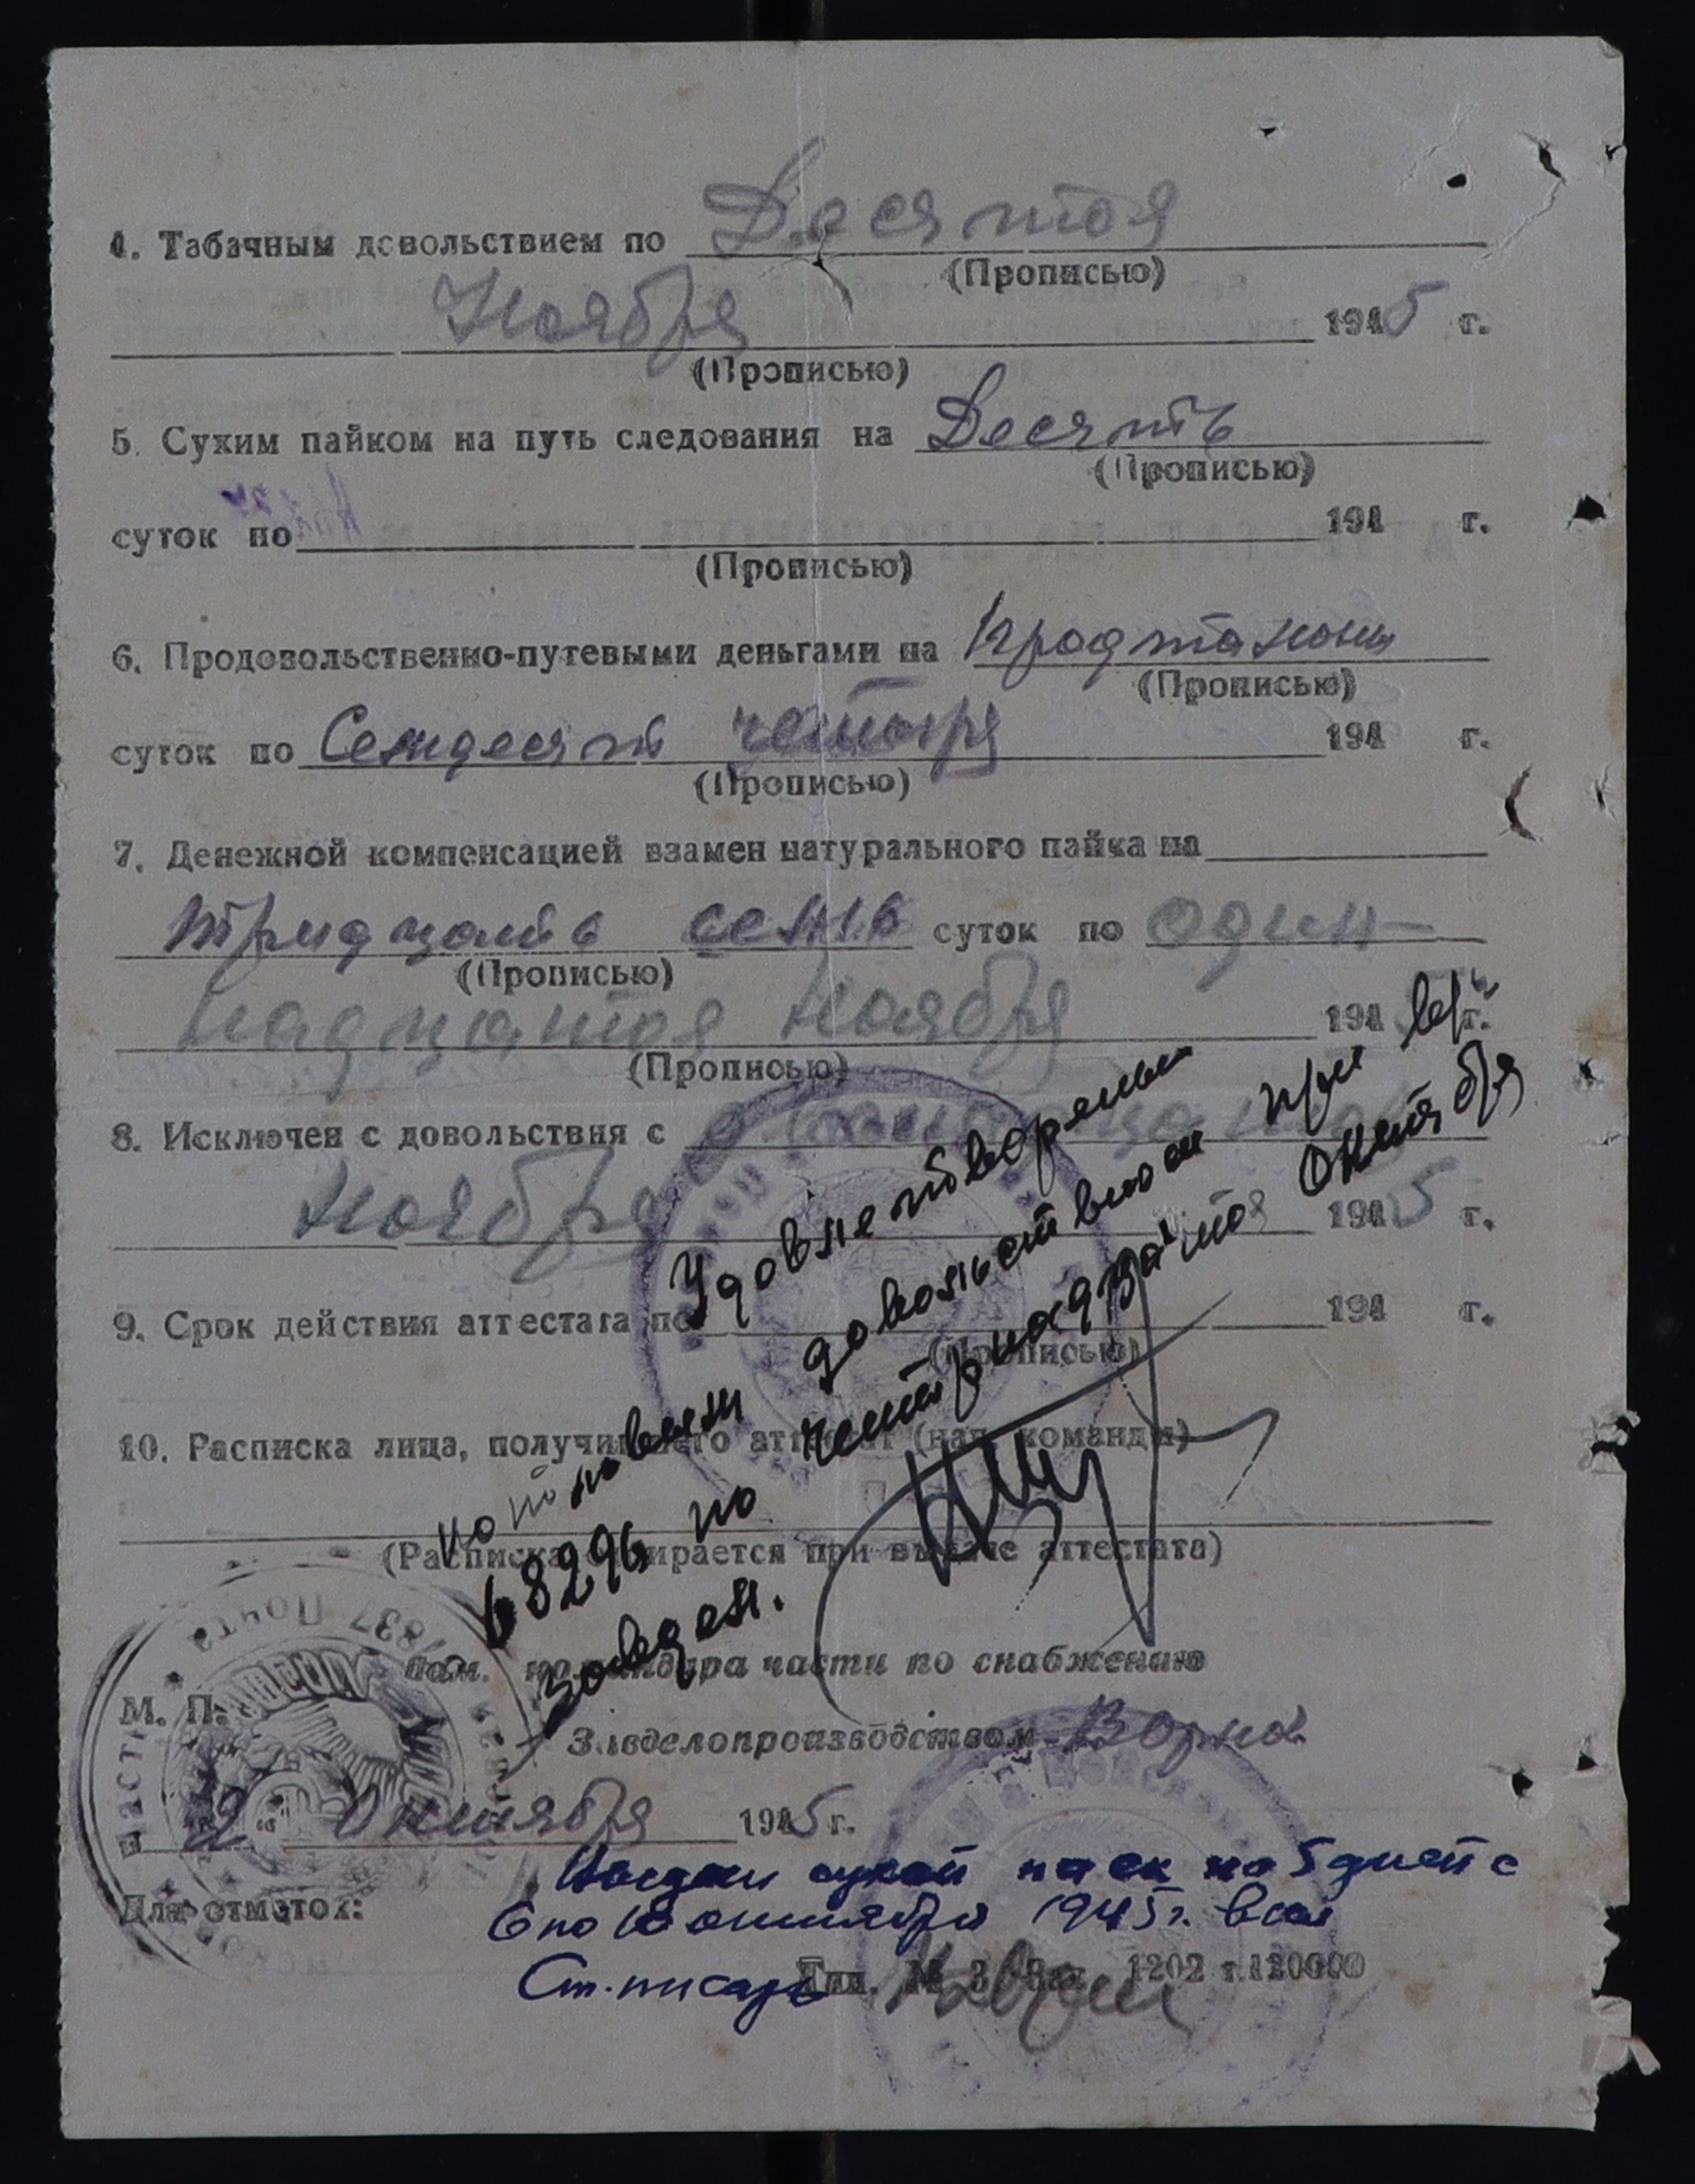 4. Табачным довольствием по Десятоя
(Прописью)
Ноября 1945 г.
(Прописью)
5. Сухим пайком на путь следования на Десять
(Прописью)
суток по 194 г.
(Прописью)
6. Продовольственно-путевыми деньгами на продталоны
(Прописью)
суток по Семдесят четыря 194 г.
(Прописью)
7. Денежной компенсацией взамен натурального пайка на
тридцать семь суток по один-
(Прописью)
надцатоя Ноября 194 г.
(Прописью)
8. Исключен с довольствия с
Ноября 1945 г.
9. Срок действия аттестата по 194 г.
(Прописью)
10. Расписка лица, получившего аттестат (нач. команды)
(Расписка отбирается при выдаче аттестата)
Удовлетворены
котловым довольствием при
68296 по четырнадцатое октября
завдел.
Пом. командира части по снабжению
М. П.
Завделопроизводством
2 " Октября 1945 г.
Выдан сухой паек на 5 дней с
6 по 10 октября 1945 г.
Для отметок:
Ст. писарь
Тип. № 3 Зак. 1202 т. 120000
37837 Почта